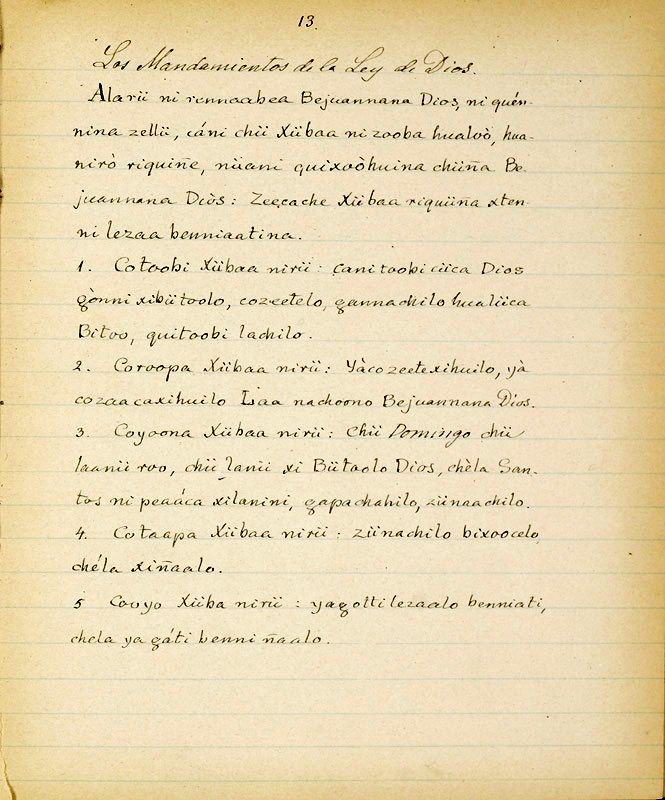 13.
Los Mandamientos de la Ley de Dios.
Alarii ni rennaabea Bejuannana Dios, ni quén-
nina zellii, cáni chii Xiibaa ni zooba hualoò, hua-
nirò riquiñe, niiani quixoòhuina chiiña Be-
juannana Diòs: Zeecache Xiibaa riquiiña xten-
ni lezaa benniaatina.
1. Cotoobi Xiibaa nirii: çani toobi ciica Dios
gònni xibiitoolo, cozeetelo, gannachilo hualiica
Bitoo, quitoobi lachilo.
2. Coroopa Xiibaa nirii: Yàcozeetexihuilo, yà
cozaacaxihuilo Laa nachoono Bejuannana Dios.
3. Coyoona Xiibaa nirii: Chii Domingo chii
laanii roo, chii lanii xi Biitaolo Dios, chèla San-
tos ni peaáca xilanini, gapachahilo, ziinaachilo.
4. Cotaapa Xiibaa nirii: ziinachilo bixoocelo,
chéla xiñaalo.
5 Cooyo Xiiba nirii: yagotti lezaalo benniati,
chela ya gáti benni ñaalo.